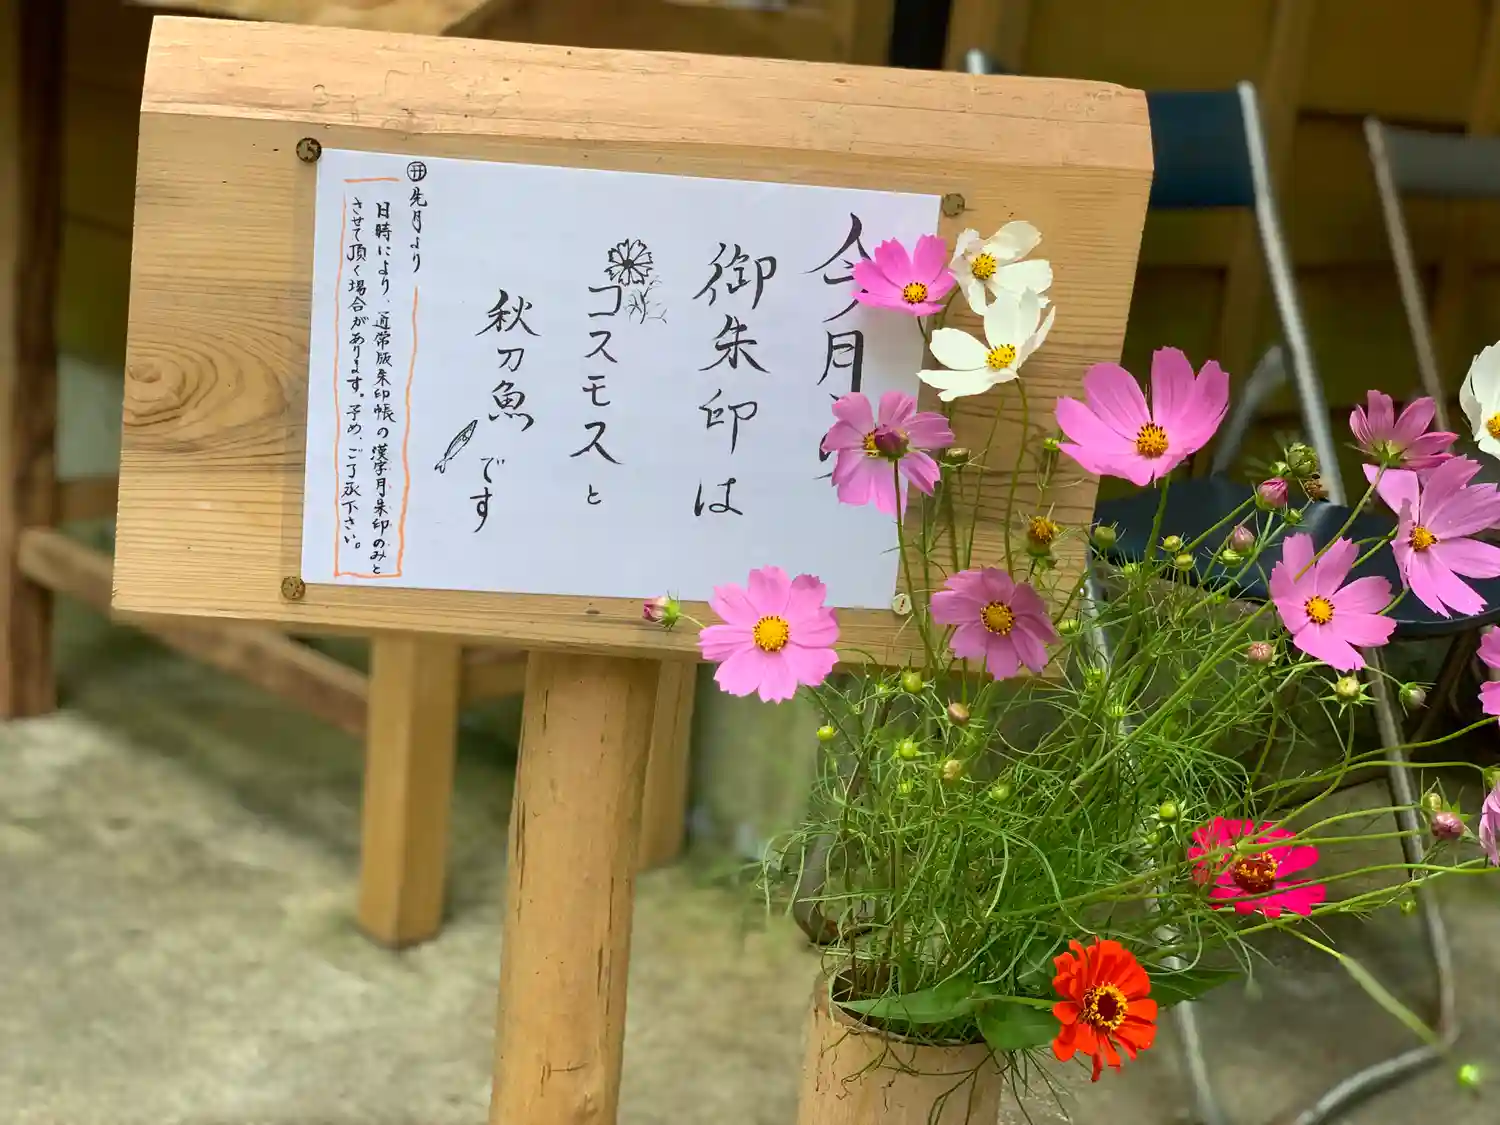 今月の
御朱印は
コスモスと
秋刀魚です
㊖先月より
日時により、通常版朱印帳の漢字月朱印のみと
させて頂く場合があります。予め、ご了承下さい。